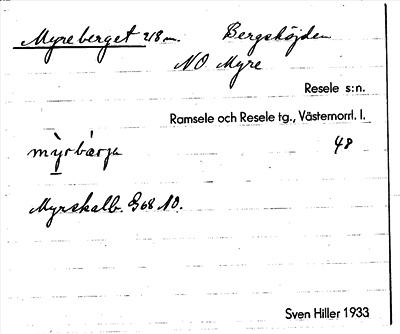 Myreberget 218 m. Bergshöjden
NO Myre
Resele s:n.
Ramsele och Resele tg., Västernorrl. l.
48
Myrskalb. G68 NO.
Sven Hiller 1933